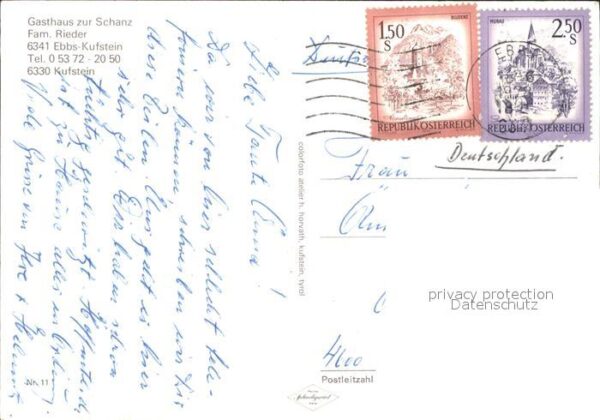 Gasthaus zur Schanz
Fam. Rieder
6341 Ebbs-Kufstein
Tel. 0 53 72 - 20 50
6330 Kufstein
Liebe Tante Anna!
Da wir von hier schlecht tele-
fonieren können, schreiben wir Dir
diese Karten. Uns geht es hier
sehr gut. Wir haben schon
tüchtig geschwitzt. Hoffentlich
ist zu Hause alles in Ordnung.
Viele Grüße von Ihre + Helmut
Nr. 11
colorfoto atelier h. horvath, kufstein, tyrol
1.50
S
BLUDENZ
REPUBLIK ÖSTERREICH
MURAU
2.50
S
REPUBLIK ÖSTERREICH
EBBS
Deutschland.
Frau
privacy protection
Datenschutz
Postleitzahl